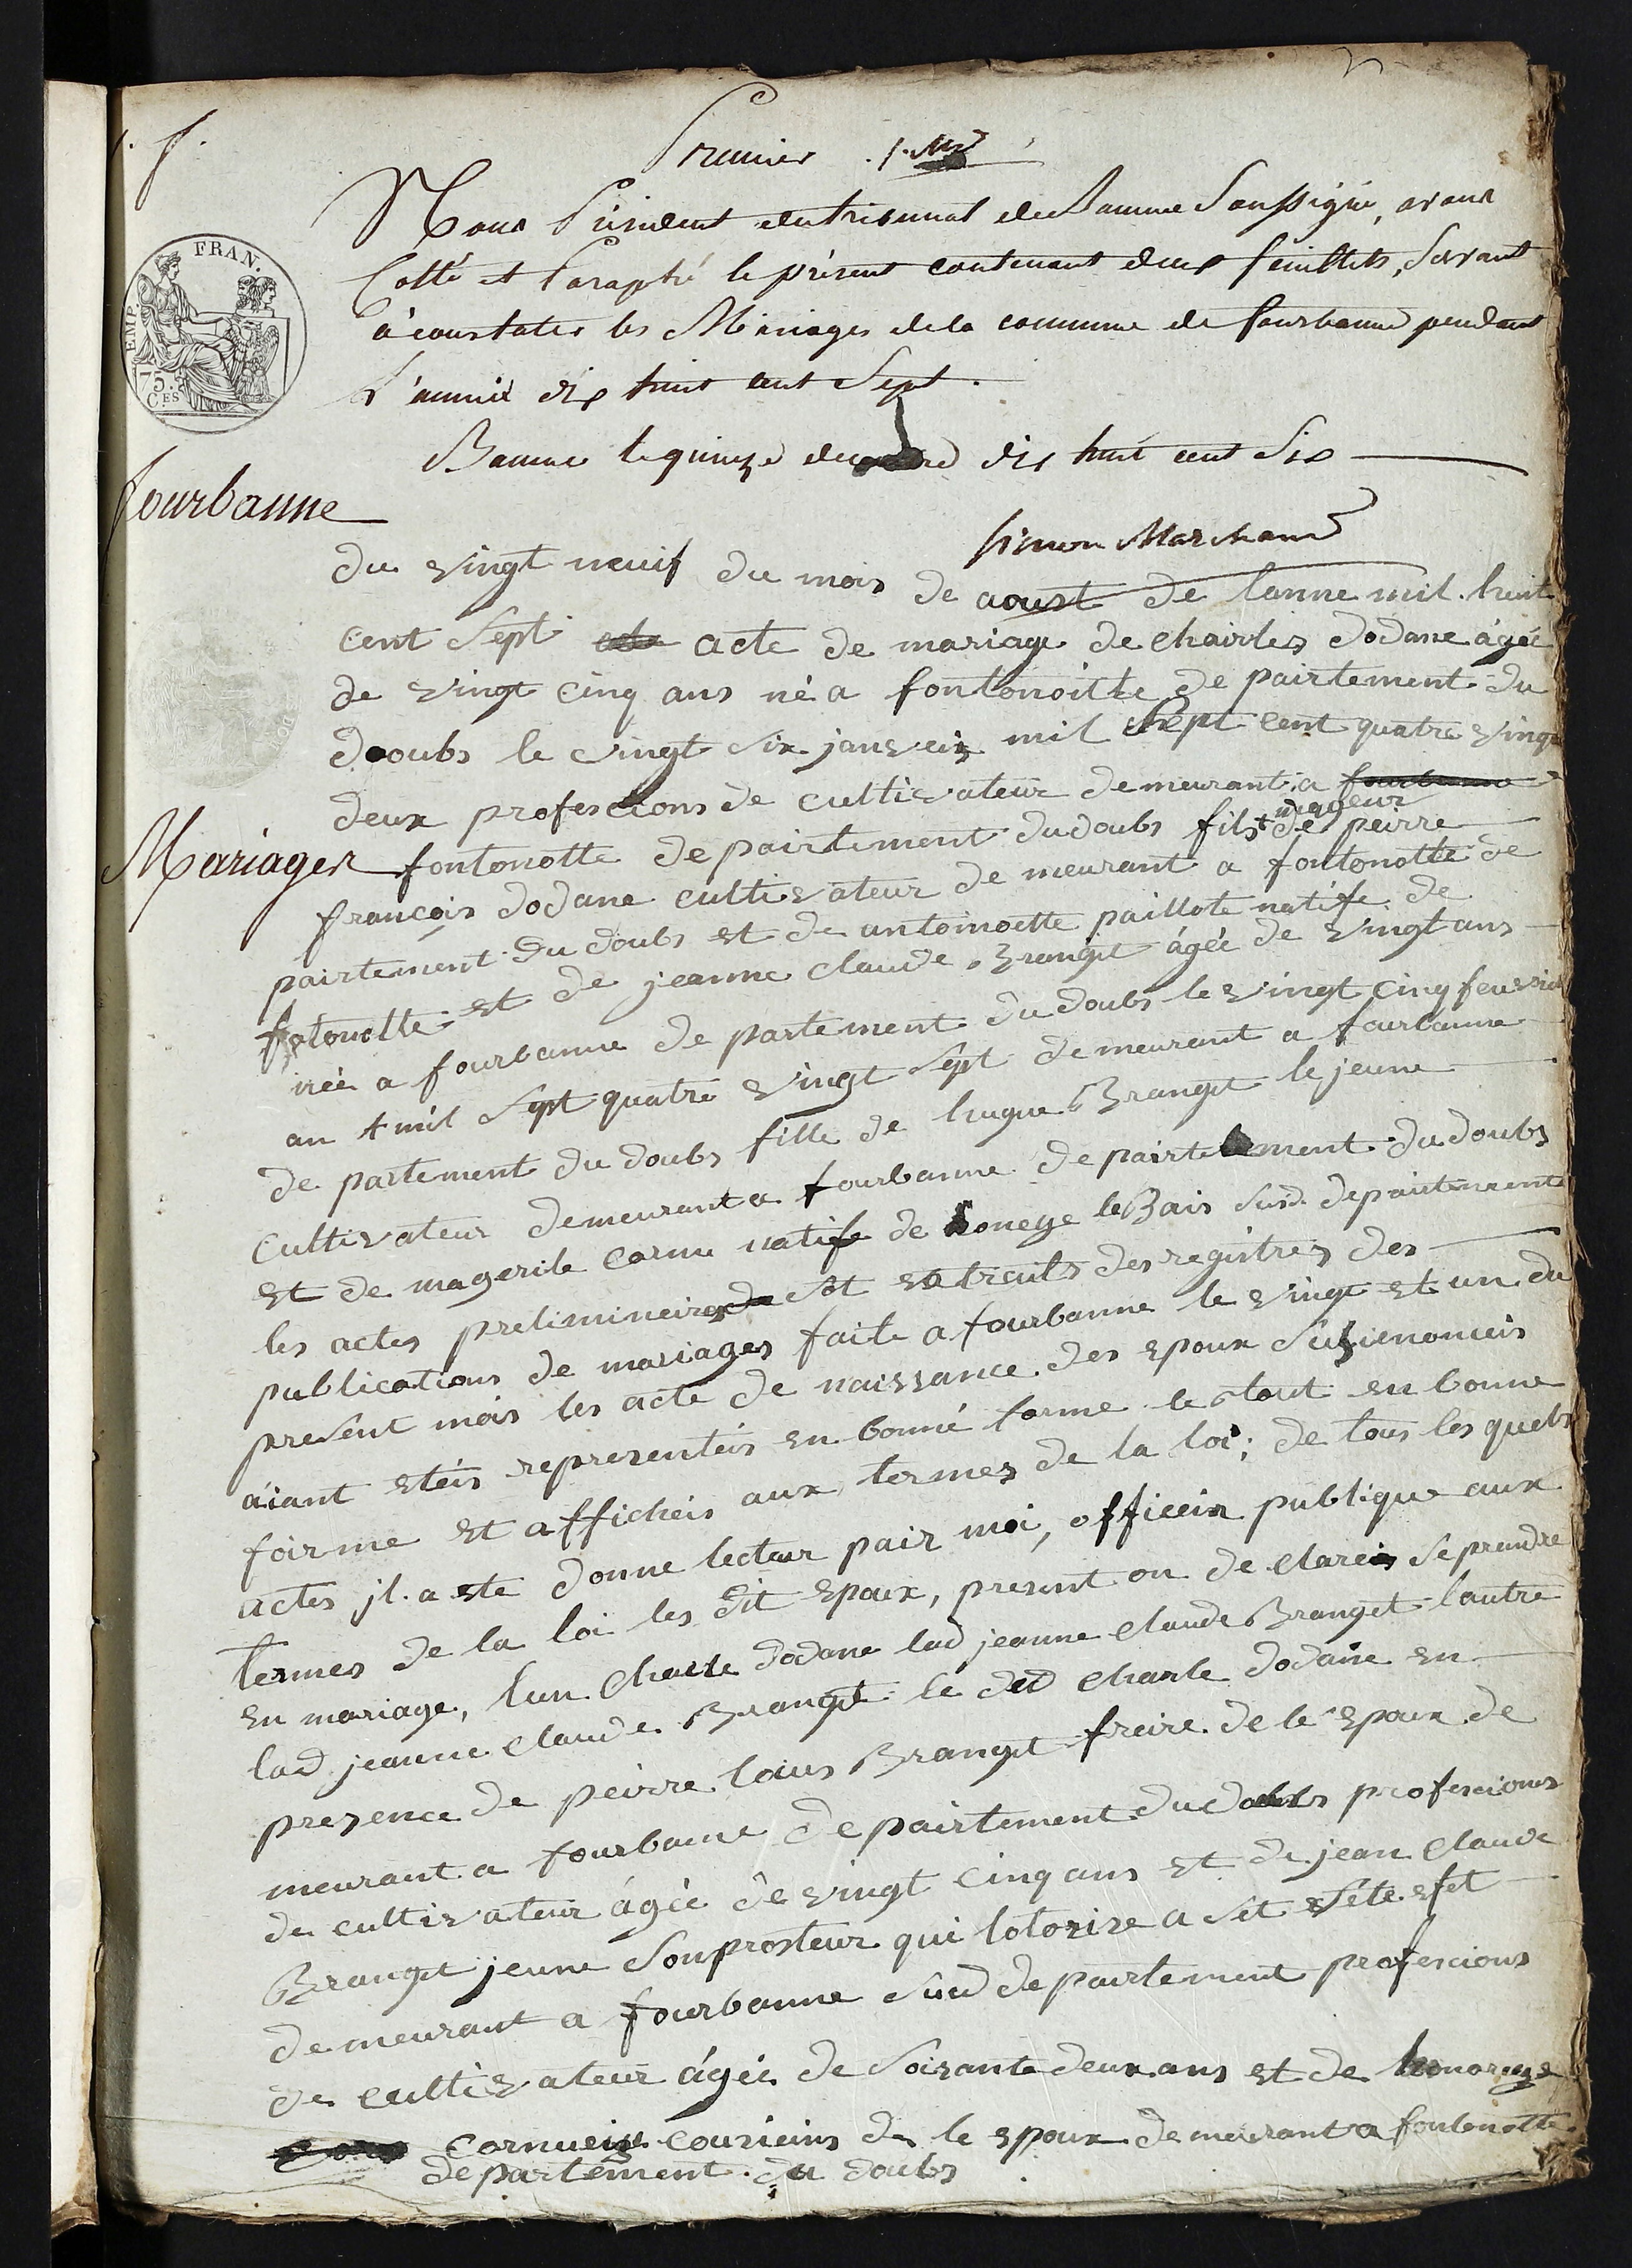 Premier
Nous Président du tribunal de Baume Soussigné, avons
Cotté et Paraphé le présent contenant deux feuillets, Servant
à constater les Mariages de la commune de fourbanne pendant
L'année dix huit cent Sept.
Baume le quinze decembre dix huit cent Six
EMP. FRAN.
75. C.ES
fourbanne
Simon Marchand
du vingt neuif du mois de aoust de lanne mil huit
cent Sept acte de mariage de chairles dodane ágée
de vingt cinq ans né a fontonoitte de pairtement du
doubs le vingt six janveiz mil Sept cent quatre vingt
deux profescions de cultivateur demeurant a fourbanne
Mariages
fontonotte depairtement du doubs fils + de peirre
mageur
françois dodane cultivateur de meurant a fontonotte de
pairtement du doubs et de antoinoette paillote natife de
fotonotte et de jeanne claude Branget ágée de vingt ans
née a fourbanne de partement du doubs le vingt cinq fevrie
an + mil Sept quatre vingt Sept de meurant a fourbanne
de partement du doubs fille de hugue Branget le jeune
cultivateur demeurant a fourbanne de pairtement du doubs
et de magerite cornu natife de le Bais Susd. depairtement
les actes prelimineires de Sot extraits des registres des
publications de mariages faite a fourbanne le vingt et un du
present mois les acte de naissance des epoux Susienonceis
aiant eteis representéis en bonné forme le tout en bonne
foirme et afficheis aux termes de la loi; de tous les quels
actes jl. a ete donne lecteur pair moi, officeir publique aux
termes de la loi les dit epoux, present on de clareis Se prendre
en mariage, lun Charle dodane lad jeanne claude Branget lautre
lad jeanne claude Branget le dit charle dodane en
presence de peirre louis Branget freire de le epoux de
meurant a fourbanne de pairtement du doubs profescions
de cultivateur ágée de vingt cinq ans et de jean claude
Branget jeune Sonprosteur qui lotorize a Set Séte efet
demeurant a fourbanne Susd departement profescions
de cultivateur ágée de Soixante deux ans et de
cornueiz couzieins de le epoux demeurant a fontonotte
departement du doubs